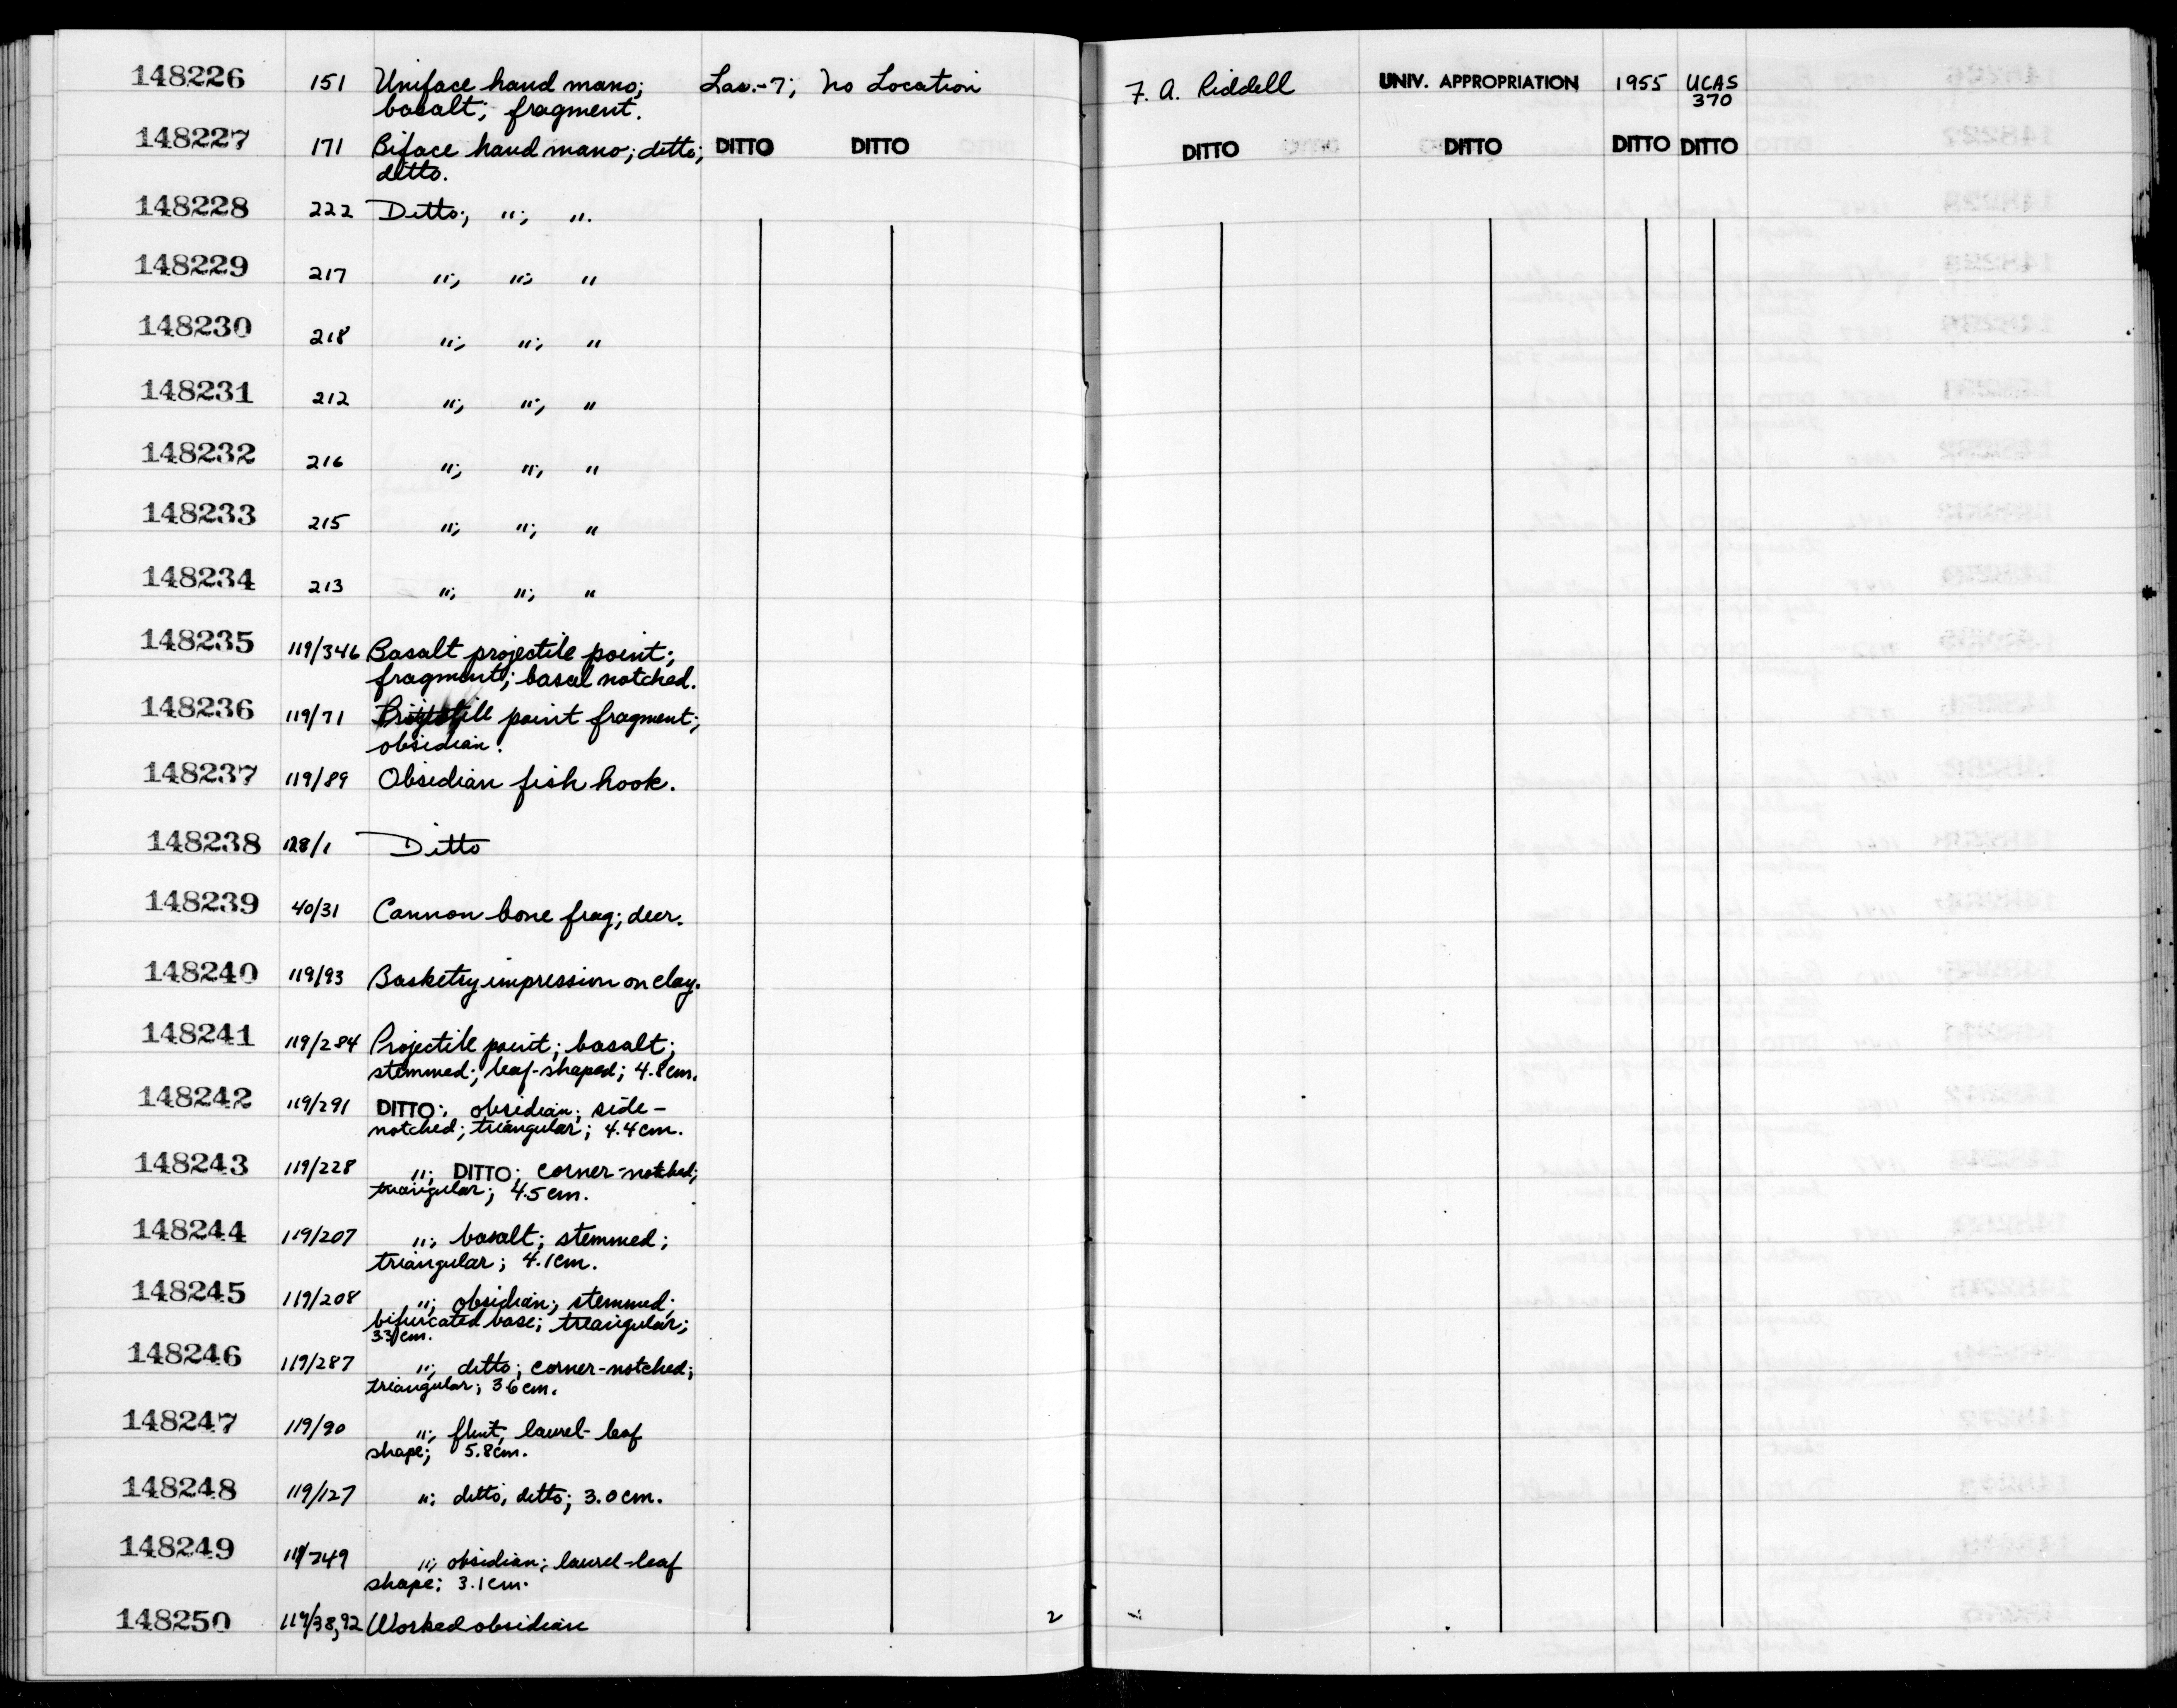 148226 151 Uniface hand mano; Las.-7; No Location F. A. Riddell UNIV. APPROPRIATION 1955 UCAS
basalt; fragment. 370
148227 171 Biface hand mano; ditto; DITTO DITTO DITTO DITTO DITTO DITTO
ditto.
148228 222 Ditto; "; ".
148229 217 "; "; "
148230 218 "; "; "
148231 212 "; "; "
148232 216 "; "; "
148233 215 "; "; "
148234 213 "; "; "
148235 119/346 Basalt projectile point;
fragment; basal notched.
148236 119/71 Projectile point fragment;
obsidian.
148237 119/89 Obsidian fish hook.
148238 128/1 Ditto
148239 40/31 Cannon bone frag; deer.
148240 119/93 Basketry impression on clay.
148241 119/284 Projectile point; basalt;
stemmed; leaf-shaped; 4.8cm.
148242 119/291 DITTO; obsidian; side-
notched; triangular; 4.4cm.
148243 119/228 "; DITTO; corner-notched;
triangular; 4.5cm.
148244 119/207 "; basalt; stemmed;
triangular; 4.1cm.
148245 119/208 "; obsidian; stemmed;
bifurcated base; triangular;
cm.
148246 119/287 "; ditto; corner-notched;
triangular; 3.6cm.
148247 119/90 "; flint; laurel-leaf
shape; 5.8cm.
148248 119/127 "; ditto; ditto; 3.0cm.
148249 119/249 "; obsidian; laurel-leaf
shape; 3.1cm.
148250 119/38,92 Worked obsidian 2